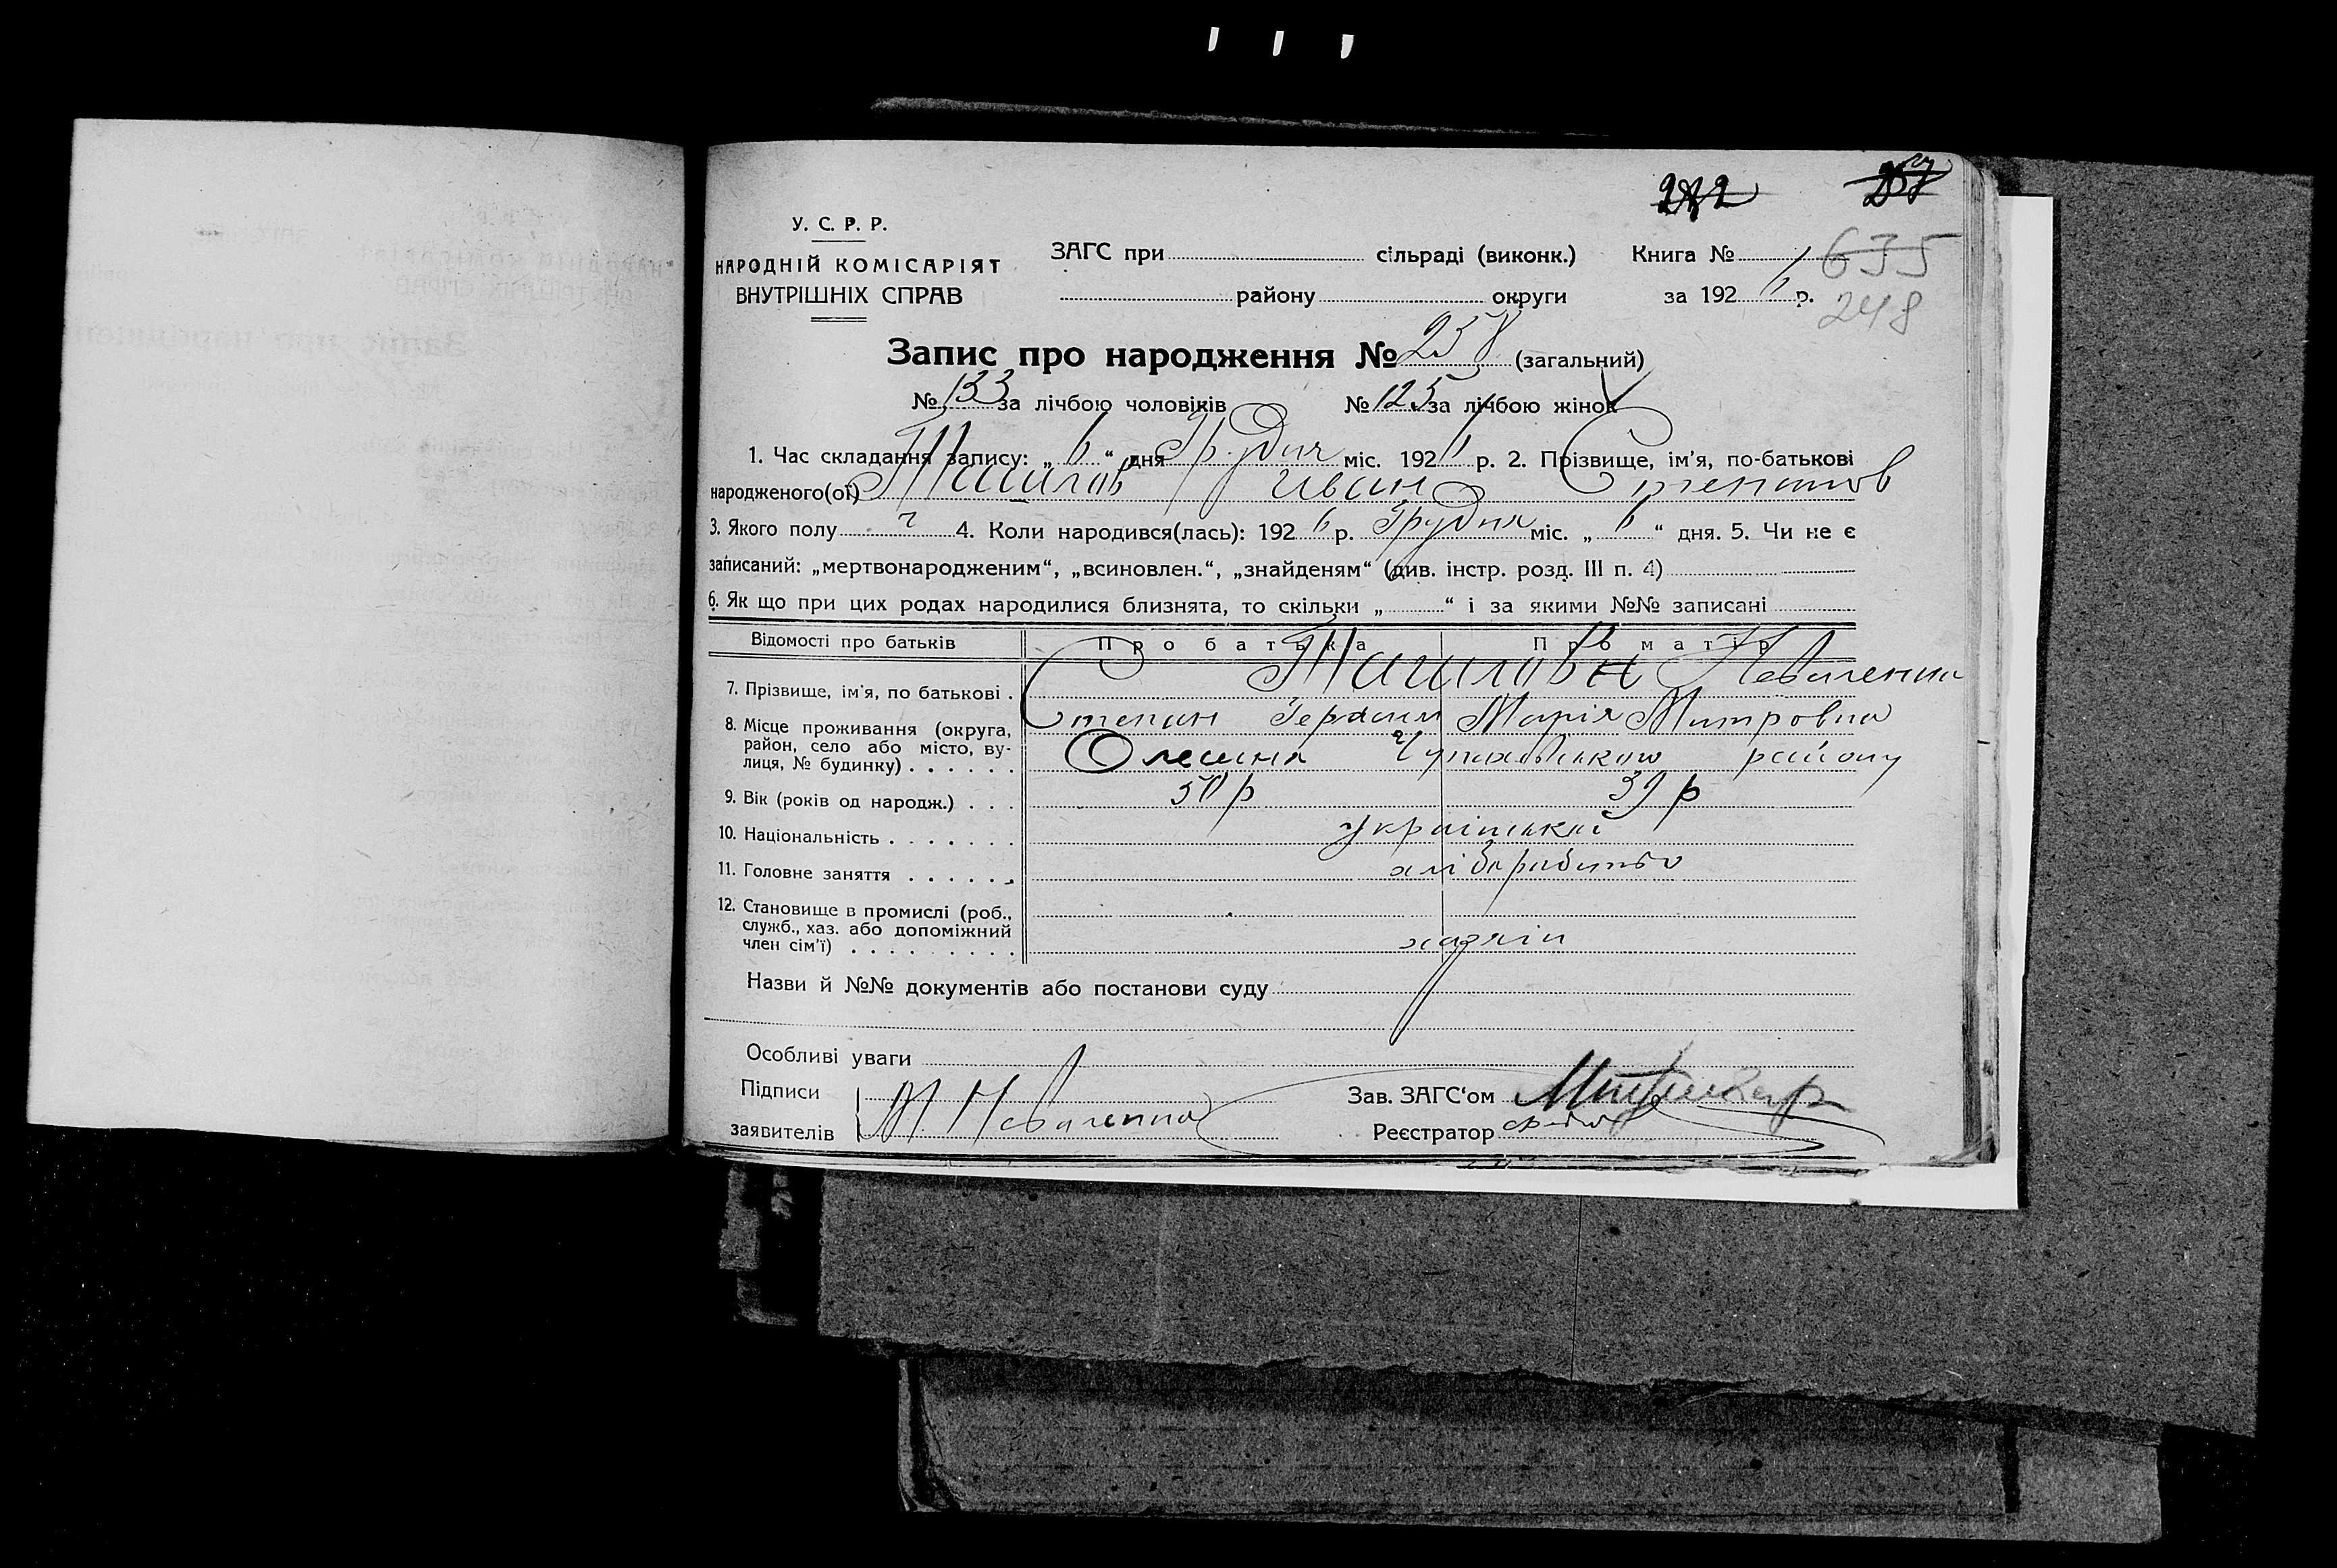 242 257
У. С. Р. Р.
НАРОДНІЙ КОМІСАРІЯТ
ВНУТРІШНІХ СПРАВ
ЗАГС при сільраді (виконк.) Книга № 635
району округи за 1926 р. 248
Запис про народження № 258 (загальний)
№ 133 за лічбою чоловіків № 125 за лічбою жінок
1. Час складання запису: „ 6 “ дня Грудня міс. 1926 р. 2. Прізвище, ім’я, по-батькові
народженого(ої) Іван Степанов
3. Якого полу ч 4. Коли народився(лась): 1926 р. Грудня міс. „ 6 “ дня. 5. Чи не є
записаний: „мертвонародженим“, „всиновлен.“, „знайденям“ (див. інстр. розд. III п. 4)
6. Як що при цих родах народилися близнята, то скільки „ “ і за якими №№ записані
Відомості про батьків Про батька Про матір
7. Прізвище, ім’я, по батькові .
Степан Марія Митровна
8. Місце проживання (округа,
район, село або місто, ву-
лиця, № будинку) . . . . . . району
9. Вік (років од народж.) . . . 50 р 39 р
10. Національність . . . . . . . українській
11. Головне заняття . . . . . . хліборобство
12. Становище в промислі (роб.,
служб., хаз. або допоміжний
член сім’ї) . . . . . . . . . хазяїн
Назви й №№ документів або постанови суду
Особливі уваги
Підписи Зав. ЗАГС‘ом
заявителів Реєстратор